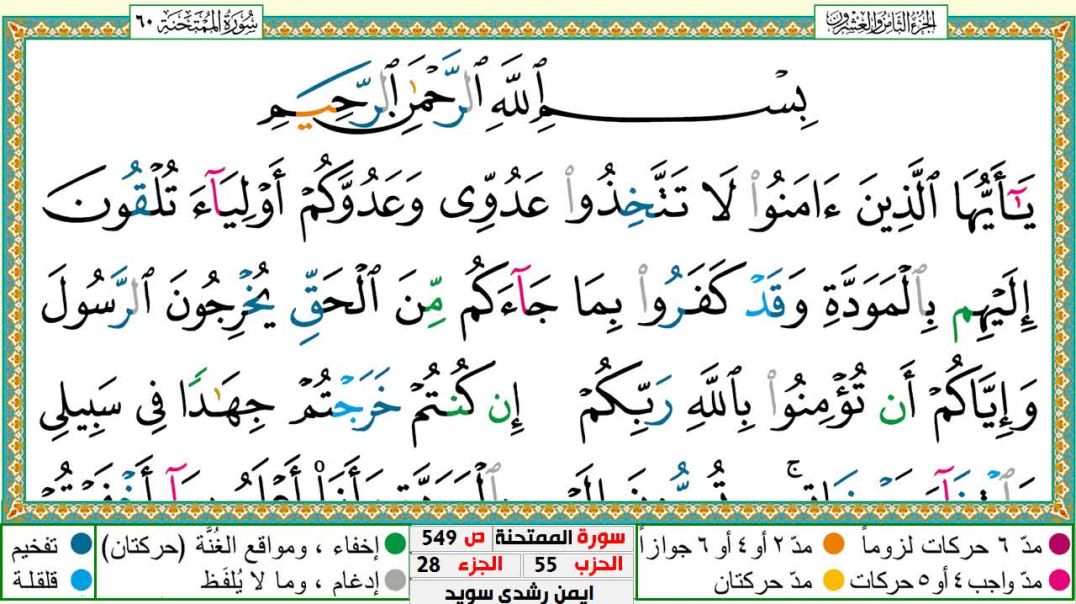 سُورَةُ المُمْتَحنَة ٦٠
الجزء الثامن والعشرون
بِسْمِ ٱللَّهِ ٱلرَّحْمَٰنِ ٱلرَّحِيمِ
يَـٰٓأَيُّهَا ٱلَّذِينَ ءَامَنُوا۟ لَا تَتَّخِذُوا۟ عَدُوِّى وَعَدُوَّكُمْ أَوْلِيَآءَ تُلْقُونَ
إِلَيْهِم بِٱلْمَوَدَّةِ وَقَدْ كَفَرُوا۟ بِمَا جَآءَكُم مِّنَ ٱلْحَقِّ يُخْرِجُونَ ٱلرَّسُولَ
وَإِيَّاكُمْ أَن تُؤْمِنُوا۟ بِٱللَّهِ رَبِّكُمْ إِن كُنتُمْ خَرَجْتُمْ جِهَـٰدًا فِى سَبِيلِى
وَٱبْتِغَآءَ مَرْضَاتِى ۚ تُسِرُّونَ إِلَيْهِم بِٱلْمَوَدَّةِ وَأَنَا۠ أَعْلَمُ بِمَآ أَخْفَيْتُمْ
مدّ ٦ حركات لزوماً
مدّ ٢ أو ٤ أو ٦ جوازاً
مدّ واجب ٤ أو ٥ حركات
مدّ حركتان
سورة الممتحنة ص 549
الحزب 55 الجزء 28
ايمن رشدي سويد
إخفاء ، ومواقع الغُنَّة (حركتان)
تفخيم
إدغام ، وما لا يُلفَظ
قلقلة